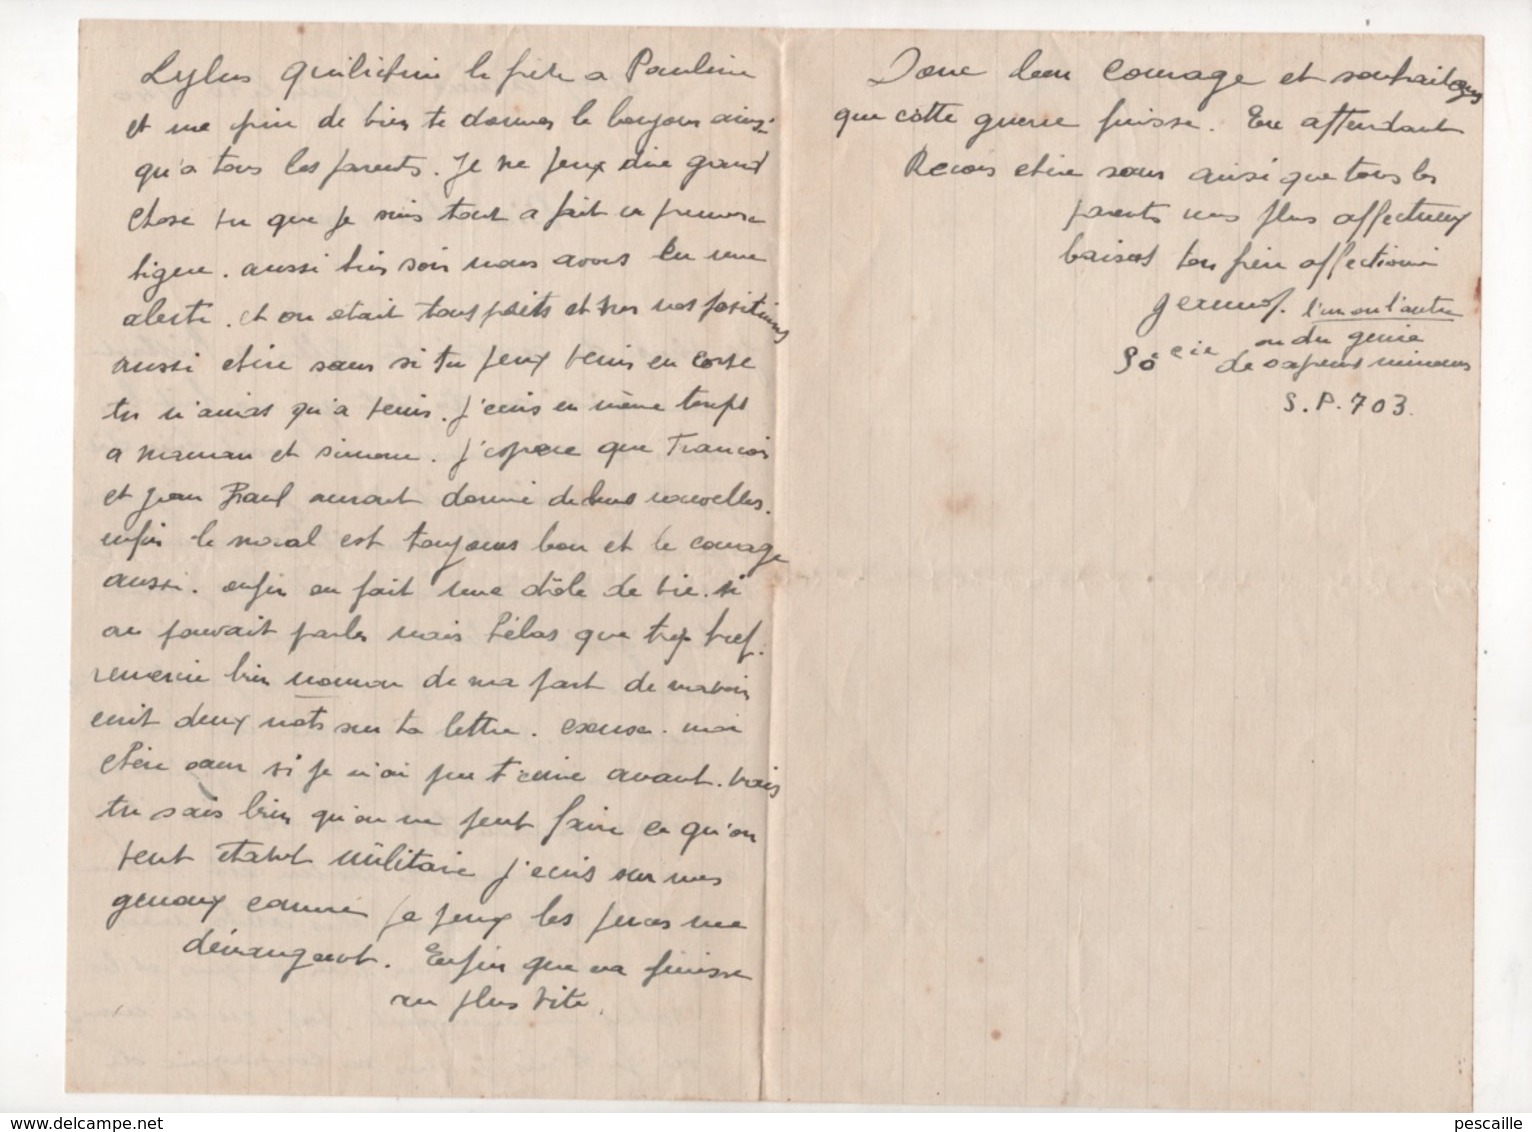 Quilichini le frère a Pauline
et me prie de bien te donner le bonjour ainsi
qu'a tous les parents. Je ne peux dire grand
chose vu que je suis tout a fait en première
ligne. aussi hier soir nous avons eu une
alerte. et on etait tous prêts et sur nos positions
aussi chère sœur si tu peux venir en corse
tu n'auras qu'a venir. j'ecris en même temps
a maman et simone. j'espere que Francois
et Jean Paul auront donné de leurs nouvelles.
enfin le moral est toujours bon et le courage
aussi. enfin on fait une drôle de vie. si
on pouvait parler mais hélas que trop bref.
remercie bien de ma part de m'avoir
ecrit deux mots sur ta lettre. excuse. moi
chère sœur si je n'ai pu t'ecrire avant. mais
tu sais bien qu'on ne peut faire ce qu'on
veut etant militaire j'ecris sur mes
genoux comme je peux les puces me
dérangent. Enfin que ca finisse
au plus vite.
Donc bon courage et souhaitons
que cette guerre finisse. En attendant
Recois chère sœur ainsi que tous les
parents mes plus affectueux
baisers ton frère affectionné
l'un ou l'autre
ou du genie
cie de sapeurs mineurs
S.P. 703.
pescaille